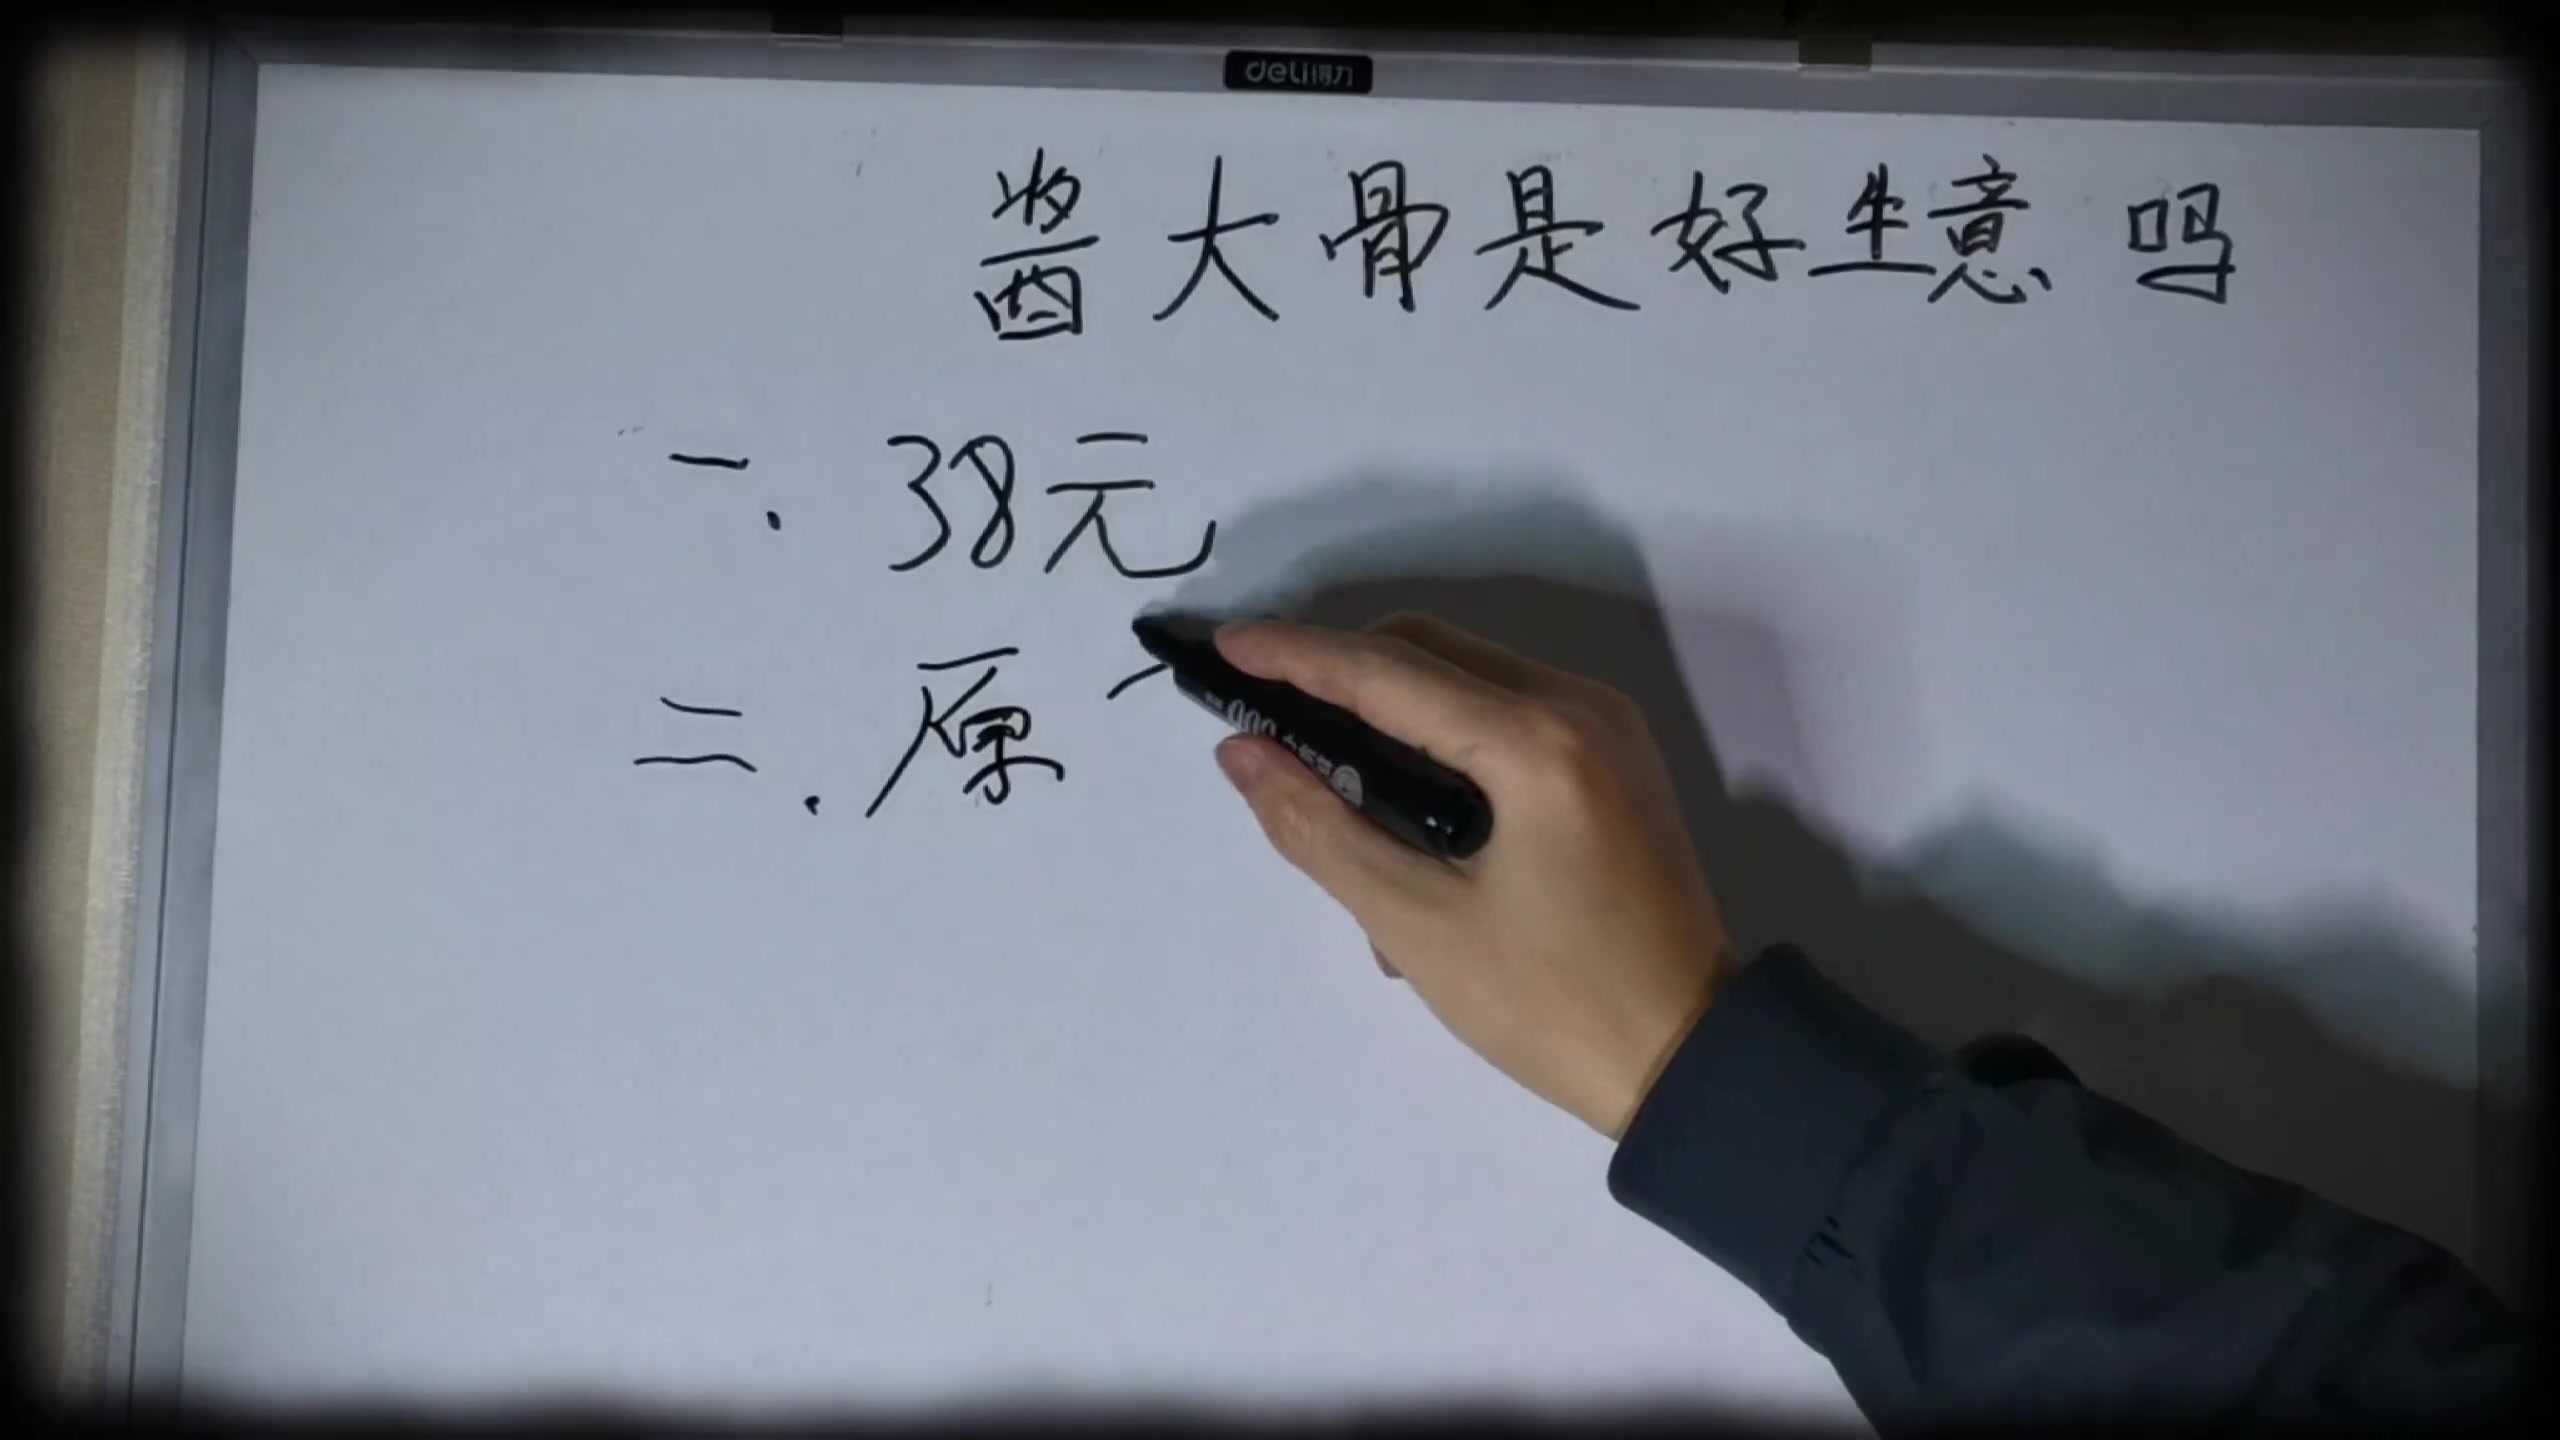 deli得力
酱大骨是好生意吗
一. 38元
二. 原